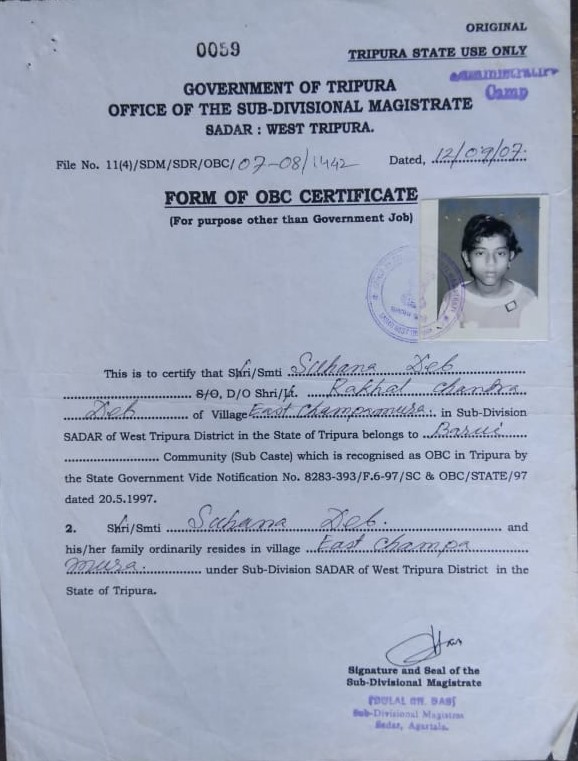 ORIGINAL
0059
TRIPURA STATE USE ONLY
Administrative
Camp
GOVERNMENT OF TRIPURA
OFFICE OF THE SUB-DIVISIONAL MAGISTRATE
SADAR : WEST TRIPURA.
File No. 11(4)/SDM/SDR/OBC/07-08/1442 Dated, 12/09/07.
FORM OF OBC CERTIFICATE
(For purpose other than Government Job)
This is to certify that Shri/Smti Suhana Deb
S/O, D/O Shri/Lt. Rakhal Chandra
Deb of Village East Champamura. in Sub-Division
SADAR of West Tripura District in the State of Tripura belongs to Barui
Community (Sub Caste) which is recognised as OBC in Tripura by
the State Government Vide Notification No. 8283-393/F.6-97/SC & OBC/STATE/97
dated 20.5.1997.
2. Shri/Smti Suhana Deb. and
his/her family ordinarily resides in village East Champa
mura. under Sub-Division SADAR of West Tripura District in the
State of Tripura.
Signature and Seal of the
Sub-Divisional Magistrate
(DULAL CH. DAS)
Sub-Divisional Magistrate
Sadar, Agartala.